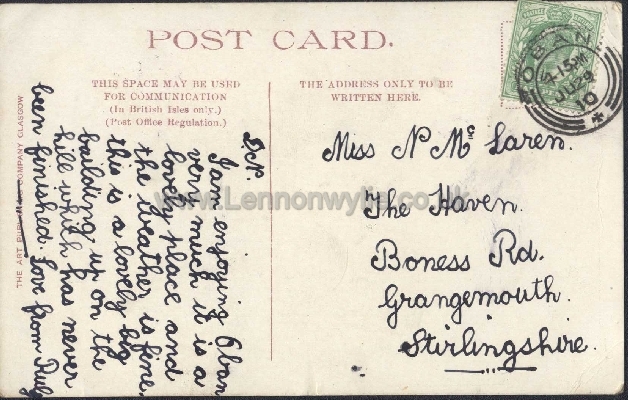 POST CARD.
THIS SPACE MAY BE USED
FOR COMMUNICATION
(In British Isles only.)
(Post Office Regulation.)
THE ADDRESS ONLY TO BE
WRITTEN HERE.
THE ART PUBLISHING COMPANY GLASGOW
D. N.
I am enjoying Oban
very much it is a
lovely place and
the weather is fine.
this is a lovely big
building up on the
hill which has never
been finished. Love from
Miss N Mc Laren.
The Haven.
Boness Rd.
Grangemouth.
Stirlingshire.
OBAN
10
www.Lennonwylie.co.uk